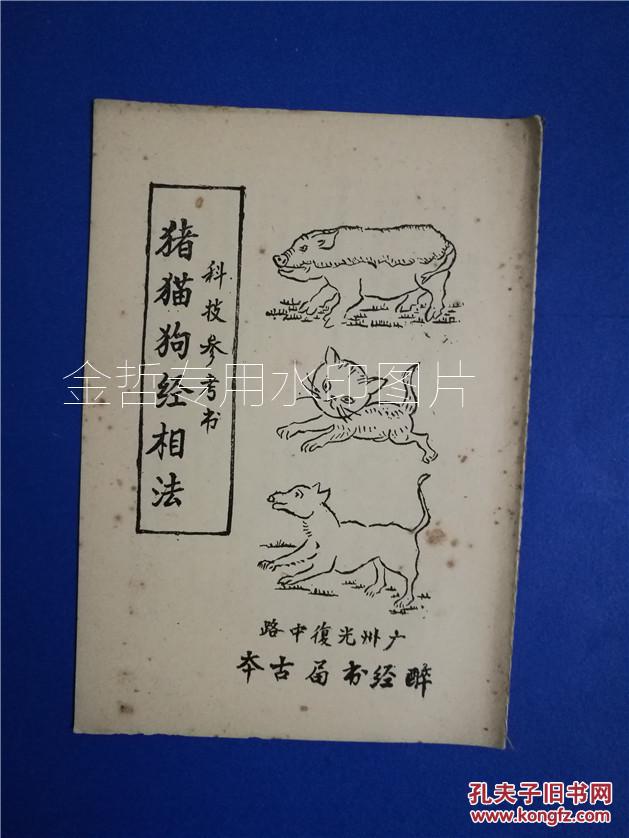 科技参考书
猪猫狗经相法
路中復光州广
夲古局书经醉
金哲专用水印图片
孔夫子旧书网
www.kongfz.com